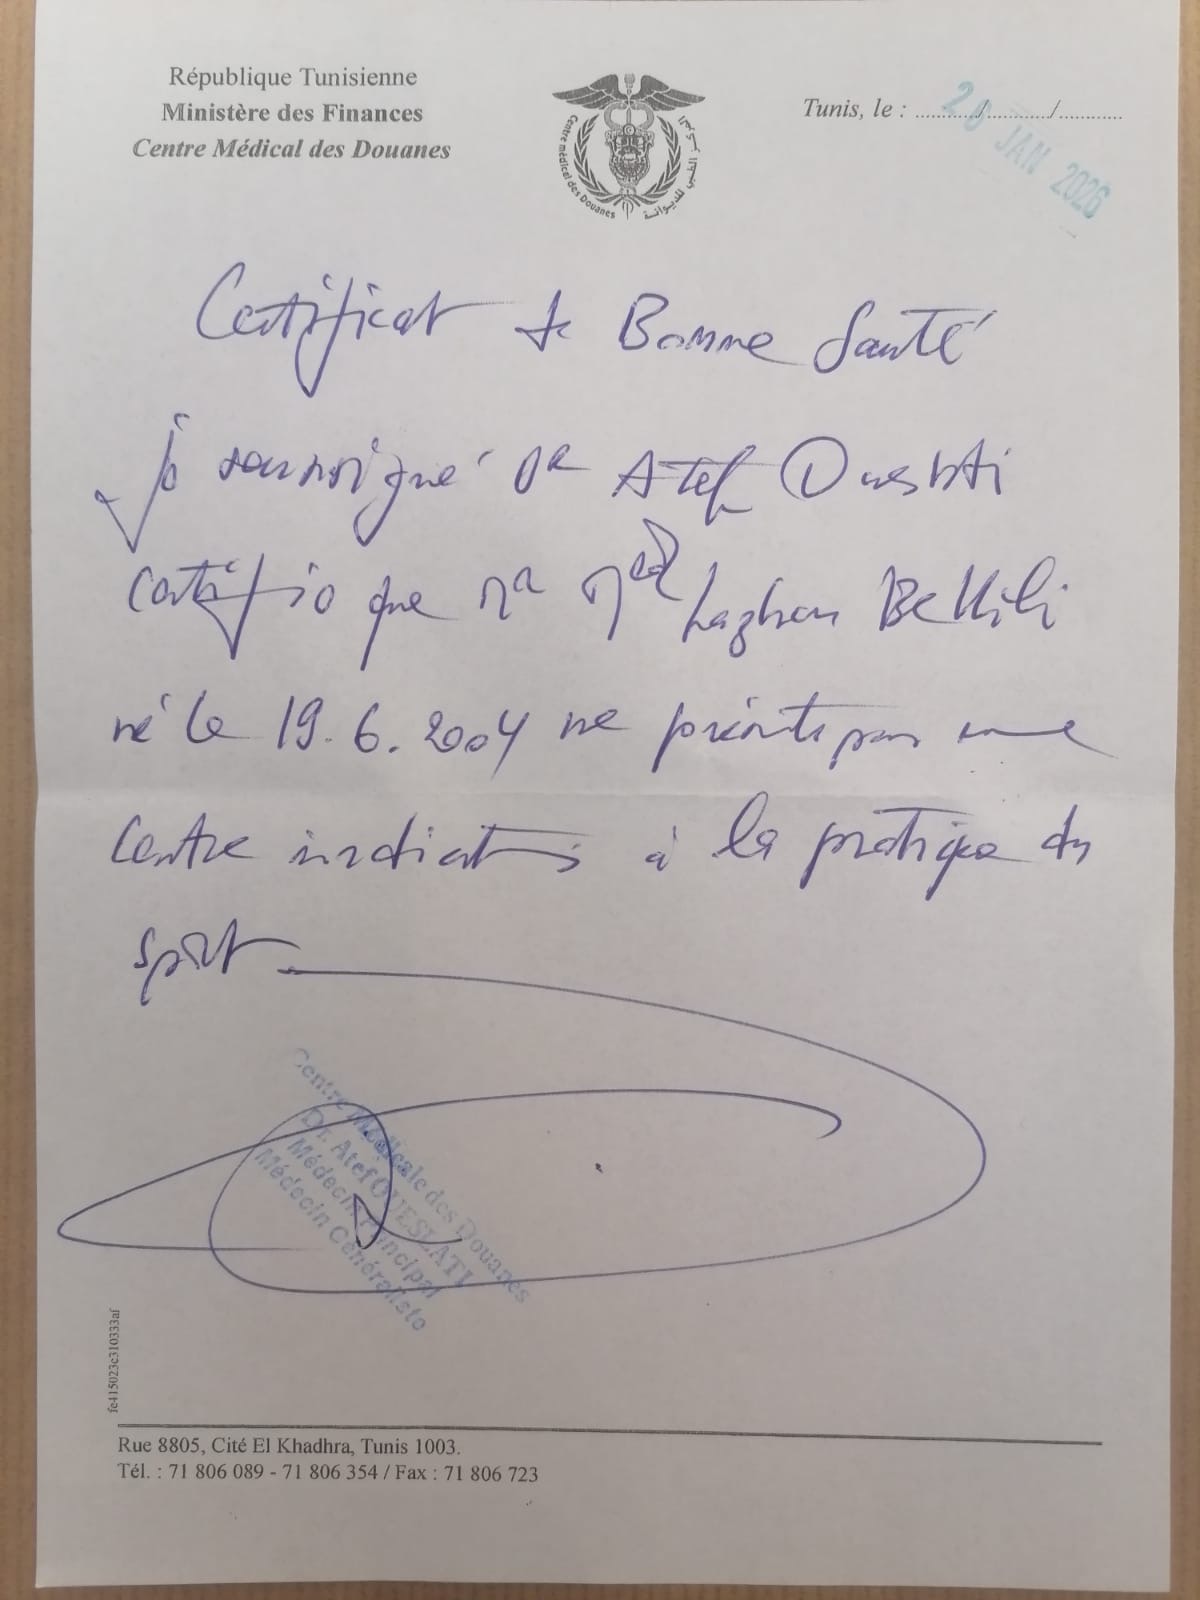 République Tunisienne
Ministère des Finances
Centre Médical des Douanes
Centre médical des Douanes
المركز الطبي للديوانة
Tunis, le : ........../........../..........
20 JAN 2026
Certificat de Bonne Santé
Je soussigné Dr Atef Oueslati
certifie que Mr Med Lazhar Bellili
né le 19.6.2004 ne présente pas une
contre indication à la pratique du
sport
Centre Médicale des Douanes
Dr. Atef OUESLATI
Médecin Principal
Médecin Généraliste
fe415023c310333af
Rue 8805, Cité El Khadhra, Tunis 1003.
Tél. : 71 806 089 - 71 806 354 / Fax : 71 806 723